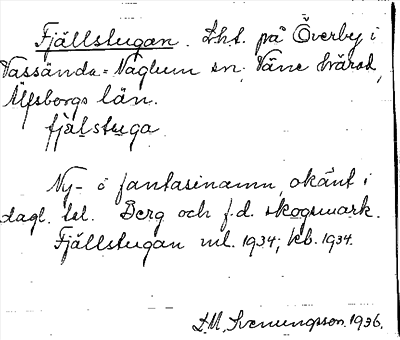 Fjällstugan. Lht. på Överby i
Vassända-Naglum sn, Väne härad,
Älfsborgs län.
fjälstuga
Ny- o fantasinamn, okänt i
dagl. tal. Berg och f.d. skogsmark.
Fjällstugan ml. 1934; kb. 1934.
D.M. Svenungsson. 1936.